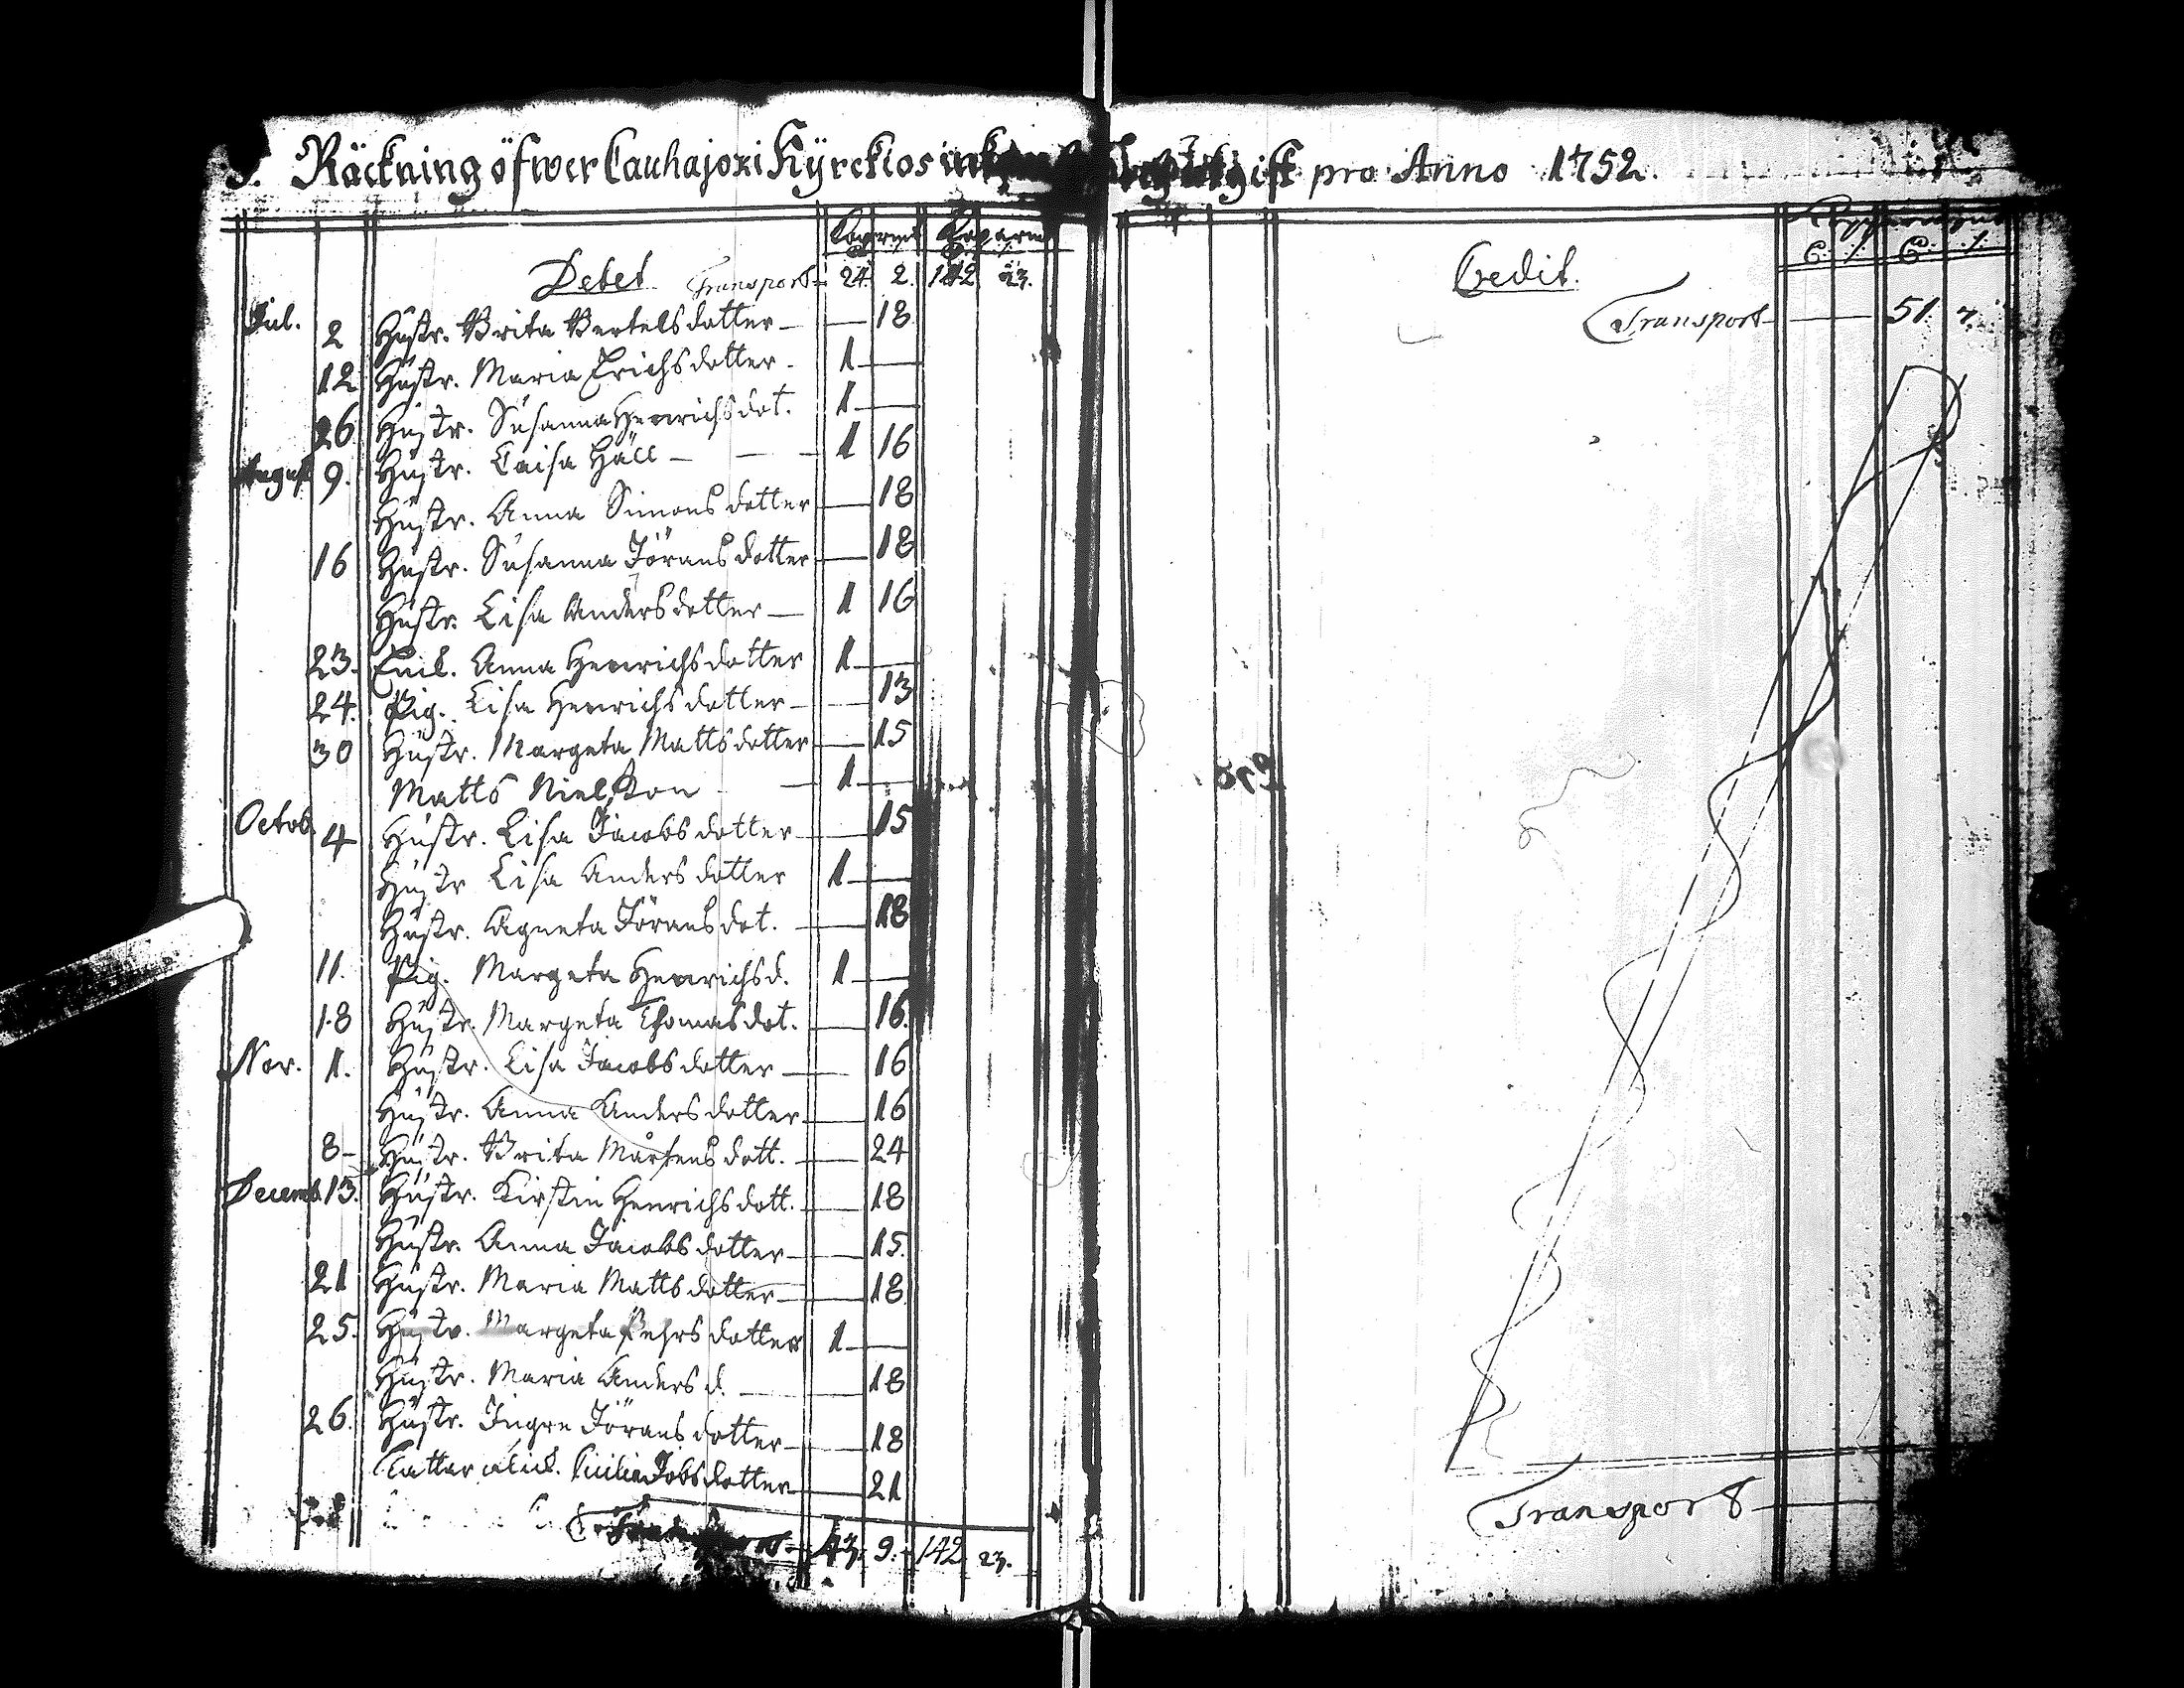 Räckning öfwer Cauhajoki Kyrckios
gift pro Anno 1752.
Debet Transport 24. 2. 142. 23.
Jul. 2 Hustr. Brita Bertels dotter — 18
12 Hustr. Maria Erichs dotter 1 —
26 Hustr. Susanna Henrichs dot. 1 —
August 9. Hustr. Caisa Häll — 1 16
Hustr. Anna Simons dotter — 18
16 Hustr. Susanna Jörans dotter — 18
Hustr. Lisa Anders dotter — 1 16
23. Anna Henrichs dotter 1 —
24. Pig. Lisa Henrichs dotter — 13
30 Hustr. Margeta Matts dotter — 15
Matts Nielsson — 1 —
Octob. 4 Hustr. Lisa Jacobs dotter — 15
Hustr Lisa Anders dotter 1 —
Hustr. Agneta Jörans dot. — 18
11. Pig. Margeta Henrichs d. 1 —
18 Hustr. Margeta Thomas dot. — 16.
Nov. 1. Hustr. Lisa Jacobs dotter — 16
Hustr. Anna Anders dotter — 16
8 — Hustr. Brita Mårtens dott. — 24
Decemb. 13. Hustr. Kirstin Henrichs dott. — 18
Hustr. Anna Jacobs dotter — 15.
21 Hustr. Maria Matts dotter — 18
25. Hustr. Margeta Pehrs dotter 1 —
Hustr. Maria Anders d. — 18
26. Hustr. Ingre Jörans dotter — 18
dotter — 21
43. 9. 142 23.
Credit.
Transport — 51. 7.
Transport —